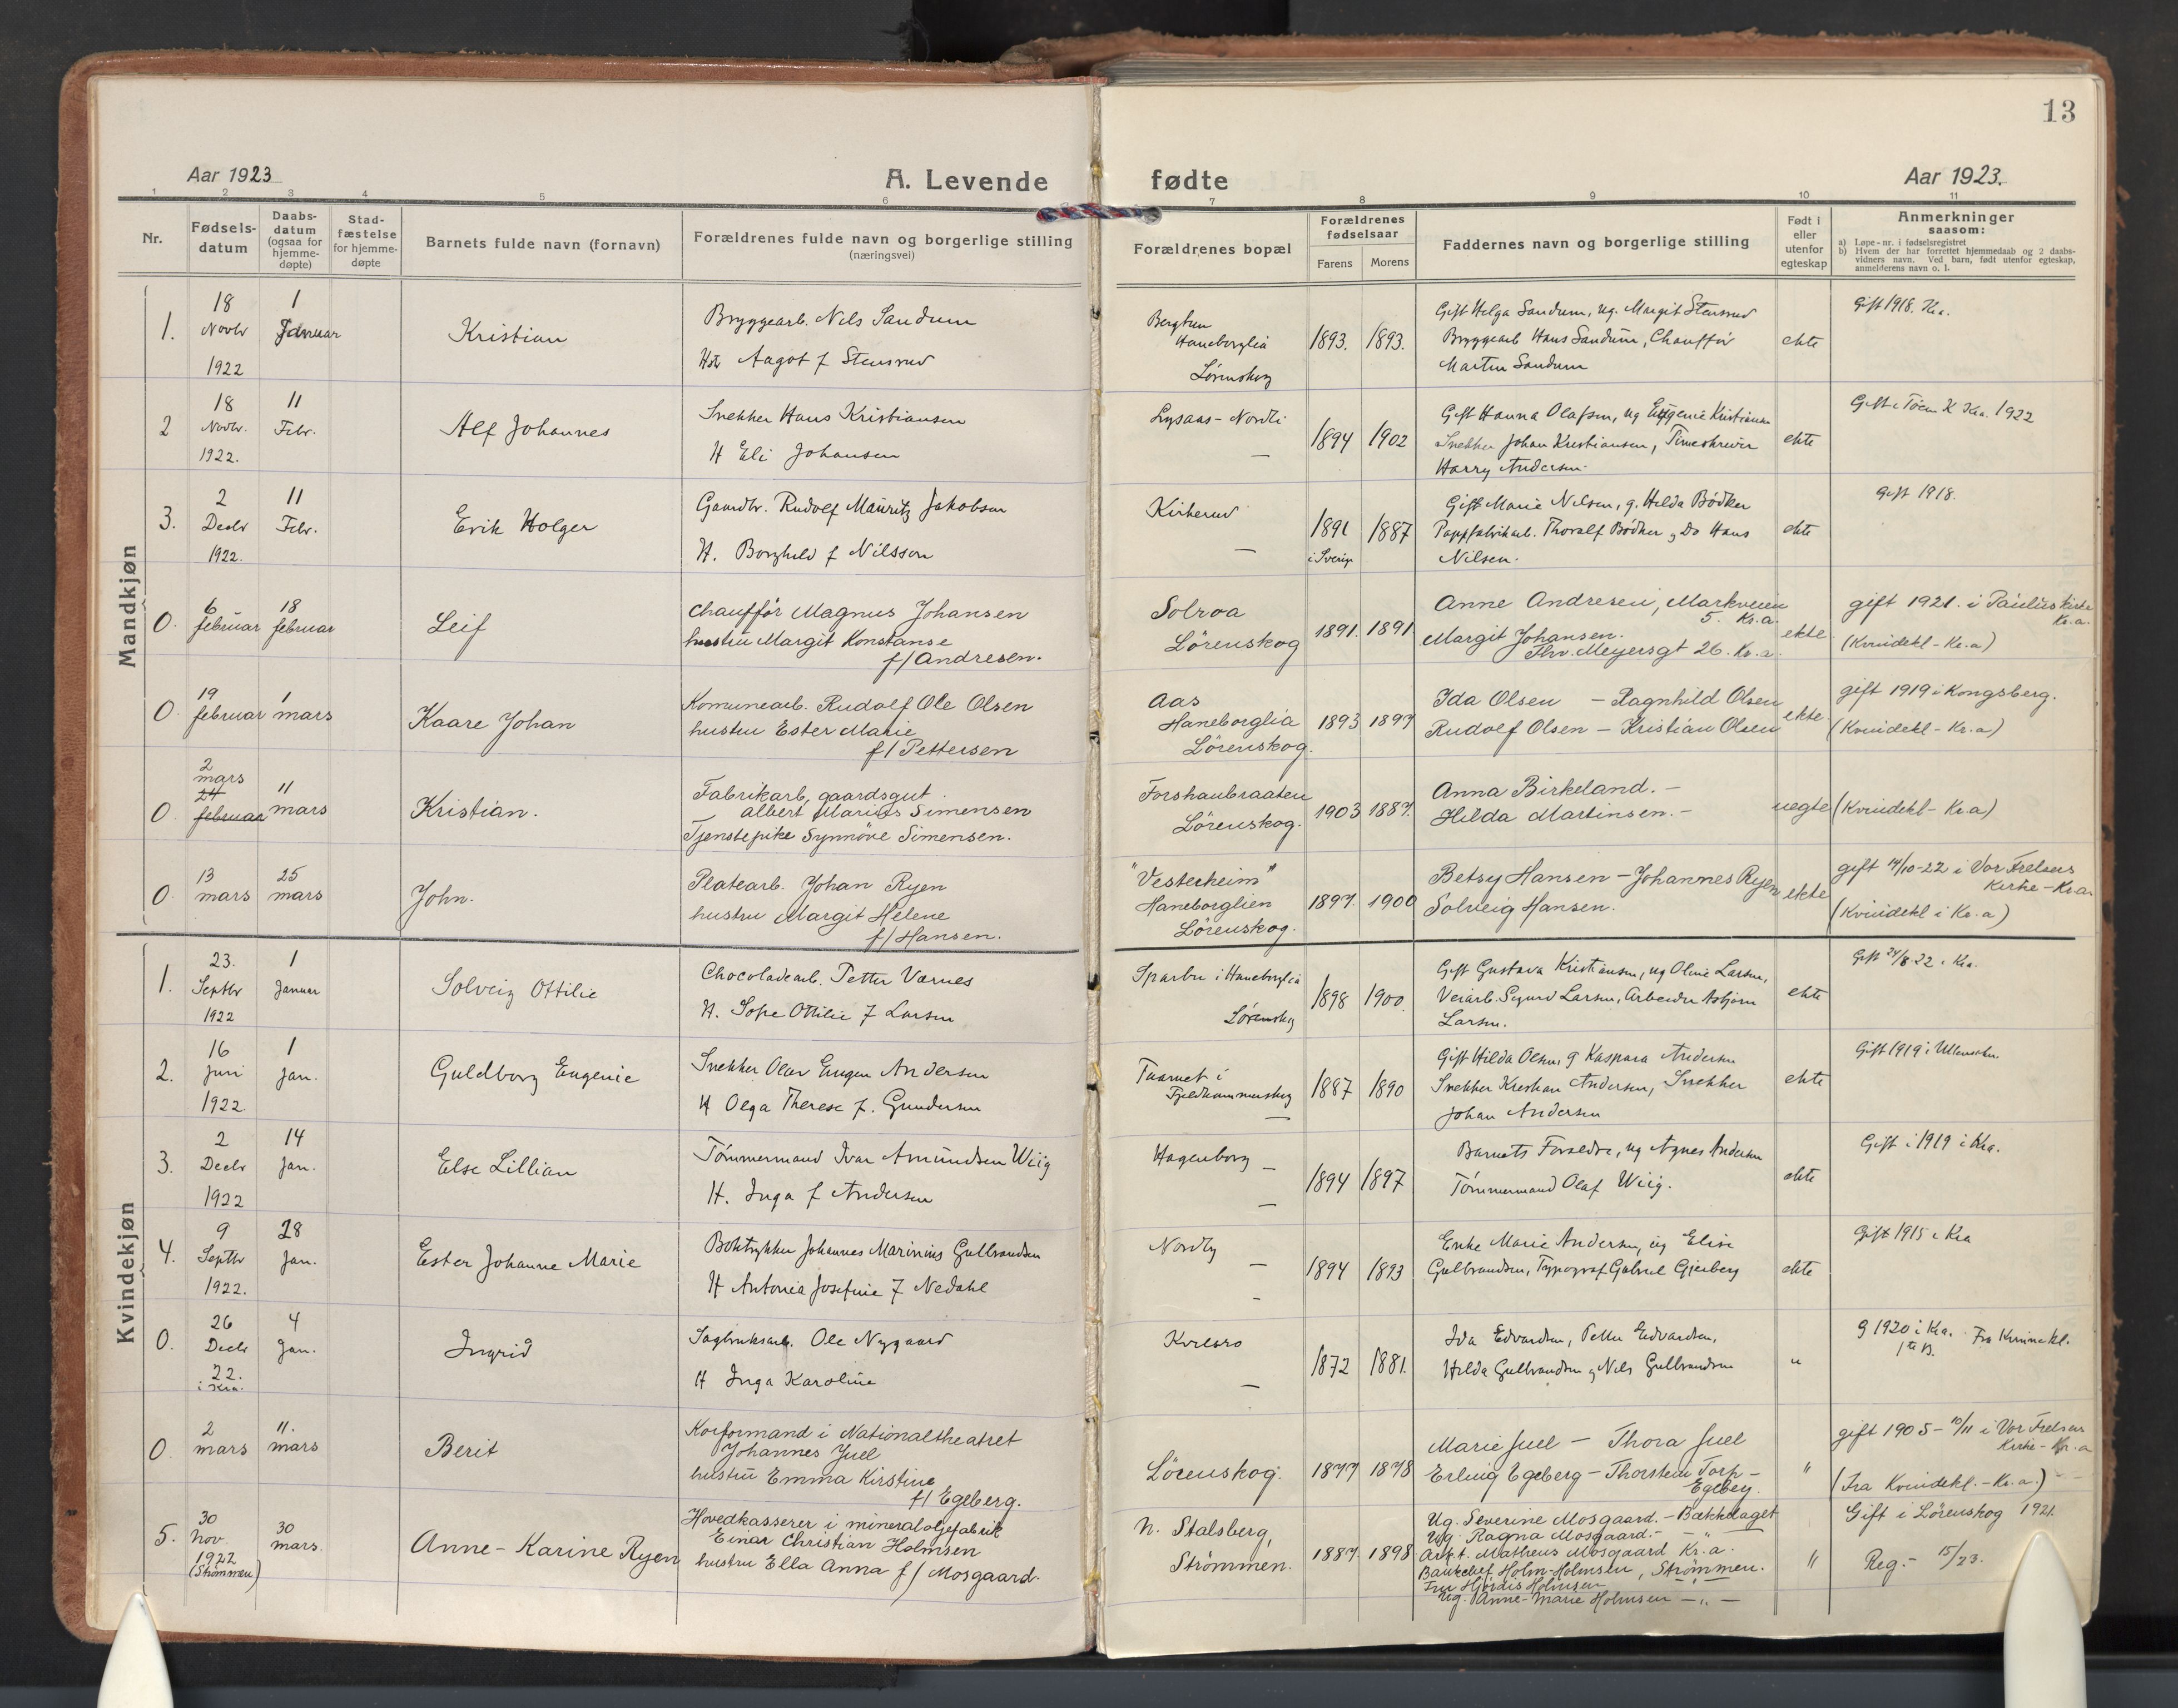 13
Aar 1923
A. Levende fødte
Aar 1923.
1 2 3 4 5 6 7 8 9 10 11
Nr.
Fødsels-datum
Daabs-datum (ogsaa for hjemme-døpte)
Stad-fæstelse for hjemme-døpte
Barnets fulde navn (fornavn)
Forældrenes fulde navn og borgerlige stilling
(næringsvei)
Forældrenes bopæl
Forældrenes fødselsaar
Farens Morens
Faddernes navn og borgerlige stilling
Født i eller utenfor egteskap
Anmerkninger
saasom:
a) Løpe-nr. i fødselsregistret
b) Hvem der har forrettet hjemmedaab og 2 daabs-
vidners navn. Ved barn, født utenfor egteskap,
anmelderens navn o. l.
Mandkjøn
1.
18 Novbr 1922
1 Januar
Kristian
Bryggearb. Nils Sandum
Hst Aagot f Stensrud
Bergtun
Haneborglia
Lørenskog
1893. 1893.
Gift Helga Sandum, ug. Margit Stensrud
Bryggearb Hans Sandum, Chauffør
Martin Sandum
ekte
Gift 1918. Kra.
2
18 Novbr. 1922.
11 Febr.
Alf Johannes
Snekker Hans Kristiansen
H Eli Johansen
Lysaas - Nordli
—
1894 1902
Gift Hanna Olafsen, ug Eugenie Kristiansen
Snekker Johan Kristiansen, Timeskriver
Harry Andersen
ekte
Gift i Tøien K Kra. 1922
3.
2 Decbr 1922.
11 Febr.
Erik Holger
Gaardbr. Rudolf Mauritz Jakobson
H. Borghild f Nilsson
Kirkerud
—
1891 i Sverige 1887
Gift Marie Nilsen, g. Hilda Bödker
Pappfabrikarb. Thoralf Bödker, Do Hans
Nilsen.
ekte
Gift 1918.
0.
6 februar
18 februar
Leif
Chauffør Magnus Johansen
hustru Margit Konstanse
f/Andresen.
Solroa
Lörenskog
1891. 1891
Anne Andresen, Markveien
5. Kr.a.
Margit Johansen.
Thv. Meyersgt 26. Kr.a.
ekte
gift 1921. i Paulus kirke
Kr.a.
(Kvindekl - Kr.a)
0.
19 februar
1 mars
Kaare Johan
Komunearb. Rudolf Ole Olsen
hustru Ester Marie
f/Pettersen
Aas
Haneborglia
Lörenskog.
1893 1897
Ida Olsen - Ragnhild Olsen
Rudolf Olsen - Kristian Olsen
ekte
gift 1919 i Kongsberg.
(Kvindekl - Kr.a)
0.
2 mars
24 februar
11 mars
Kristian.
Fabrikarb, gaardsgut
Albert Marius Simensen
Tjenstepike Synnöve Simensen.
Forshaubraaten
Lörenskog.
1903 1887.
Anna Birkeland. -
Hilda Martinsen. -
uegte
(Kvindekl - Kr.a)
0
13 mars
25 mars
John.
Platearb. Johan Ryen
hustru Margit Helene
f/Hansen.
"Vesterheim"
Haneborglien
Lörenskog.
1897. 1900
Betsy Hansen - Johannes Ryen
Solveig Hansen.
ekte
gift 14/10-22 i Vor Frelsers
Kirke - Kr.a.
(Kvindekl i Kr.a)
Kvindekjøn
1.
23. Septbr 1922
1 Januar
Solveig Ottilie
Chocoladearb. Petter Værnes
H. Sofie Ottilie f Larsen
Sparbu i Haneborglia
Lørenskog
1898 1900.
Gift Gustava Kristiansen, ug Oline Larsen,
Veiarb. Sigurd Larsen, Arbeider Asbjørn
Larsen.
ekte
Gift 24/8 22 i Kra.
2.
16 Juni 1922
1 Jan.
Guldborg Eugenie
Snekker Olav Eugen Andersen
H Olga Therese f. Gundersen
Taarnet i
Fjeldhammerskog
—
1887 1890
Gift Hilda Olsen, g Kaspara Andersen
Snekker Kristian Andersen, Snekker
Johan Andersen
ekte
Gift 1919 i Ullensaker.
3.
2 Decbr 1922
14 Jan.
Else Lillian
Tømmermand Ivar Amundsen Wiig
H. Inga f Andersen
Hagenborg —
—
1894 1897
Barnets Foreldre, ug Agnes Andersen
Tømmermand Olaf Wiig.
ekte
Gift i 1919 i Kra.
4.
9 Septbr 1922.
28 Jan.
Ester Johanne Marie
Boktrykker Johannes Marinius Gulbrandsen
H Antonia Josefine f Nedahl
Nordby
—
1894 1893
Enke Marie Andersen, ug Elise
Gulbrandsen, Typograf Gabriel Gjerberg
ekte
Gift 1915 i Kra
0.
26 Decbr 22. i Kra.
4 Jan.
Ingrid
Sagbruksarb. Ole Nygaard
H Inga Karoline
Kvilsro
—
1872 1881.
Ida Edvardsen, Petter Edvardsen,
Hilda Gulbrandsen, Nils Gulbrandsen
"
g 1920 i Kra. Fra Kvinnekl.
0.
2 mars
11. mars
Berit
Korformand i Nationaltheatret
Johannes Juel
hustru Emma Kirstine
f/Egeberg.
Lörenskog.
1877 1878
Marie Juel - Thora Juel
Erling Egeberg - Thorstein Torp -
Egeberg.
"
gift 1905 - 10/11 i Vor Frelsers
Kirke - Kr.a
(Fra Kvindekl. - Kr.a.)
5.
30 Nov. 1922 (Strömmen)
30 mars.
Anne-Karine Ryen
Hovedkasserer i mineraloljefabrik
Einar Christian Holmsen
hustru Ella Anna f/Mosgaard.
N. Stalsberg,
Strömmen.
1887. 1898
Ug. Severine Mosgaard. - Bækkelaget
Ug. Ragna Mosgaard. - "
Arkt. Matheus Mosgaard Kr.a.
Bankchef Holm-Holmsen, Strömmen.
Fru Hjördis Holmsen
Ug. Anne-Marie Holmsen - " -
"
Gift i Lörenskog 1921.
Reg. - 15/23.